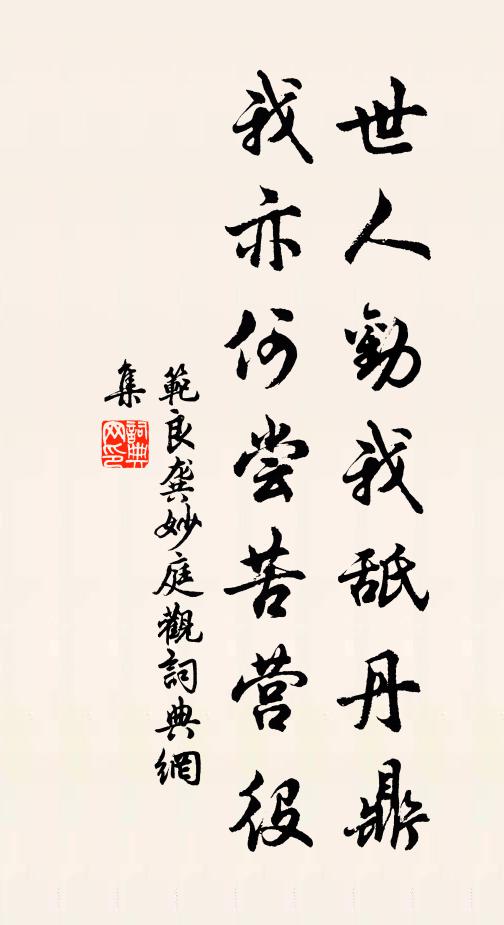 世人勸我舐丹鼎
我亦何尝苦营役
範良龚妙庭觀詞典網
集
詞典
网印